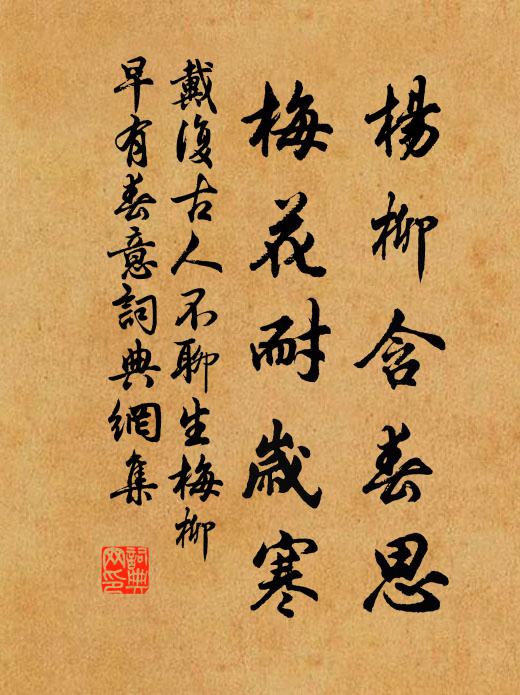 楊柳含春思
梅花耐歲寒
戴復古人不聊生梅柳
早有春意詞典網集
詞典網印